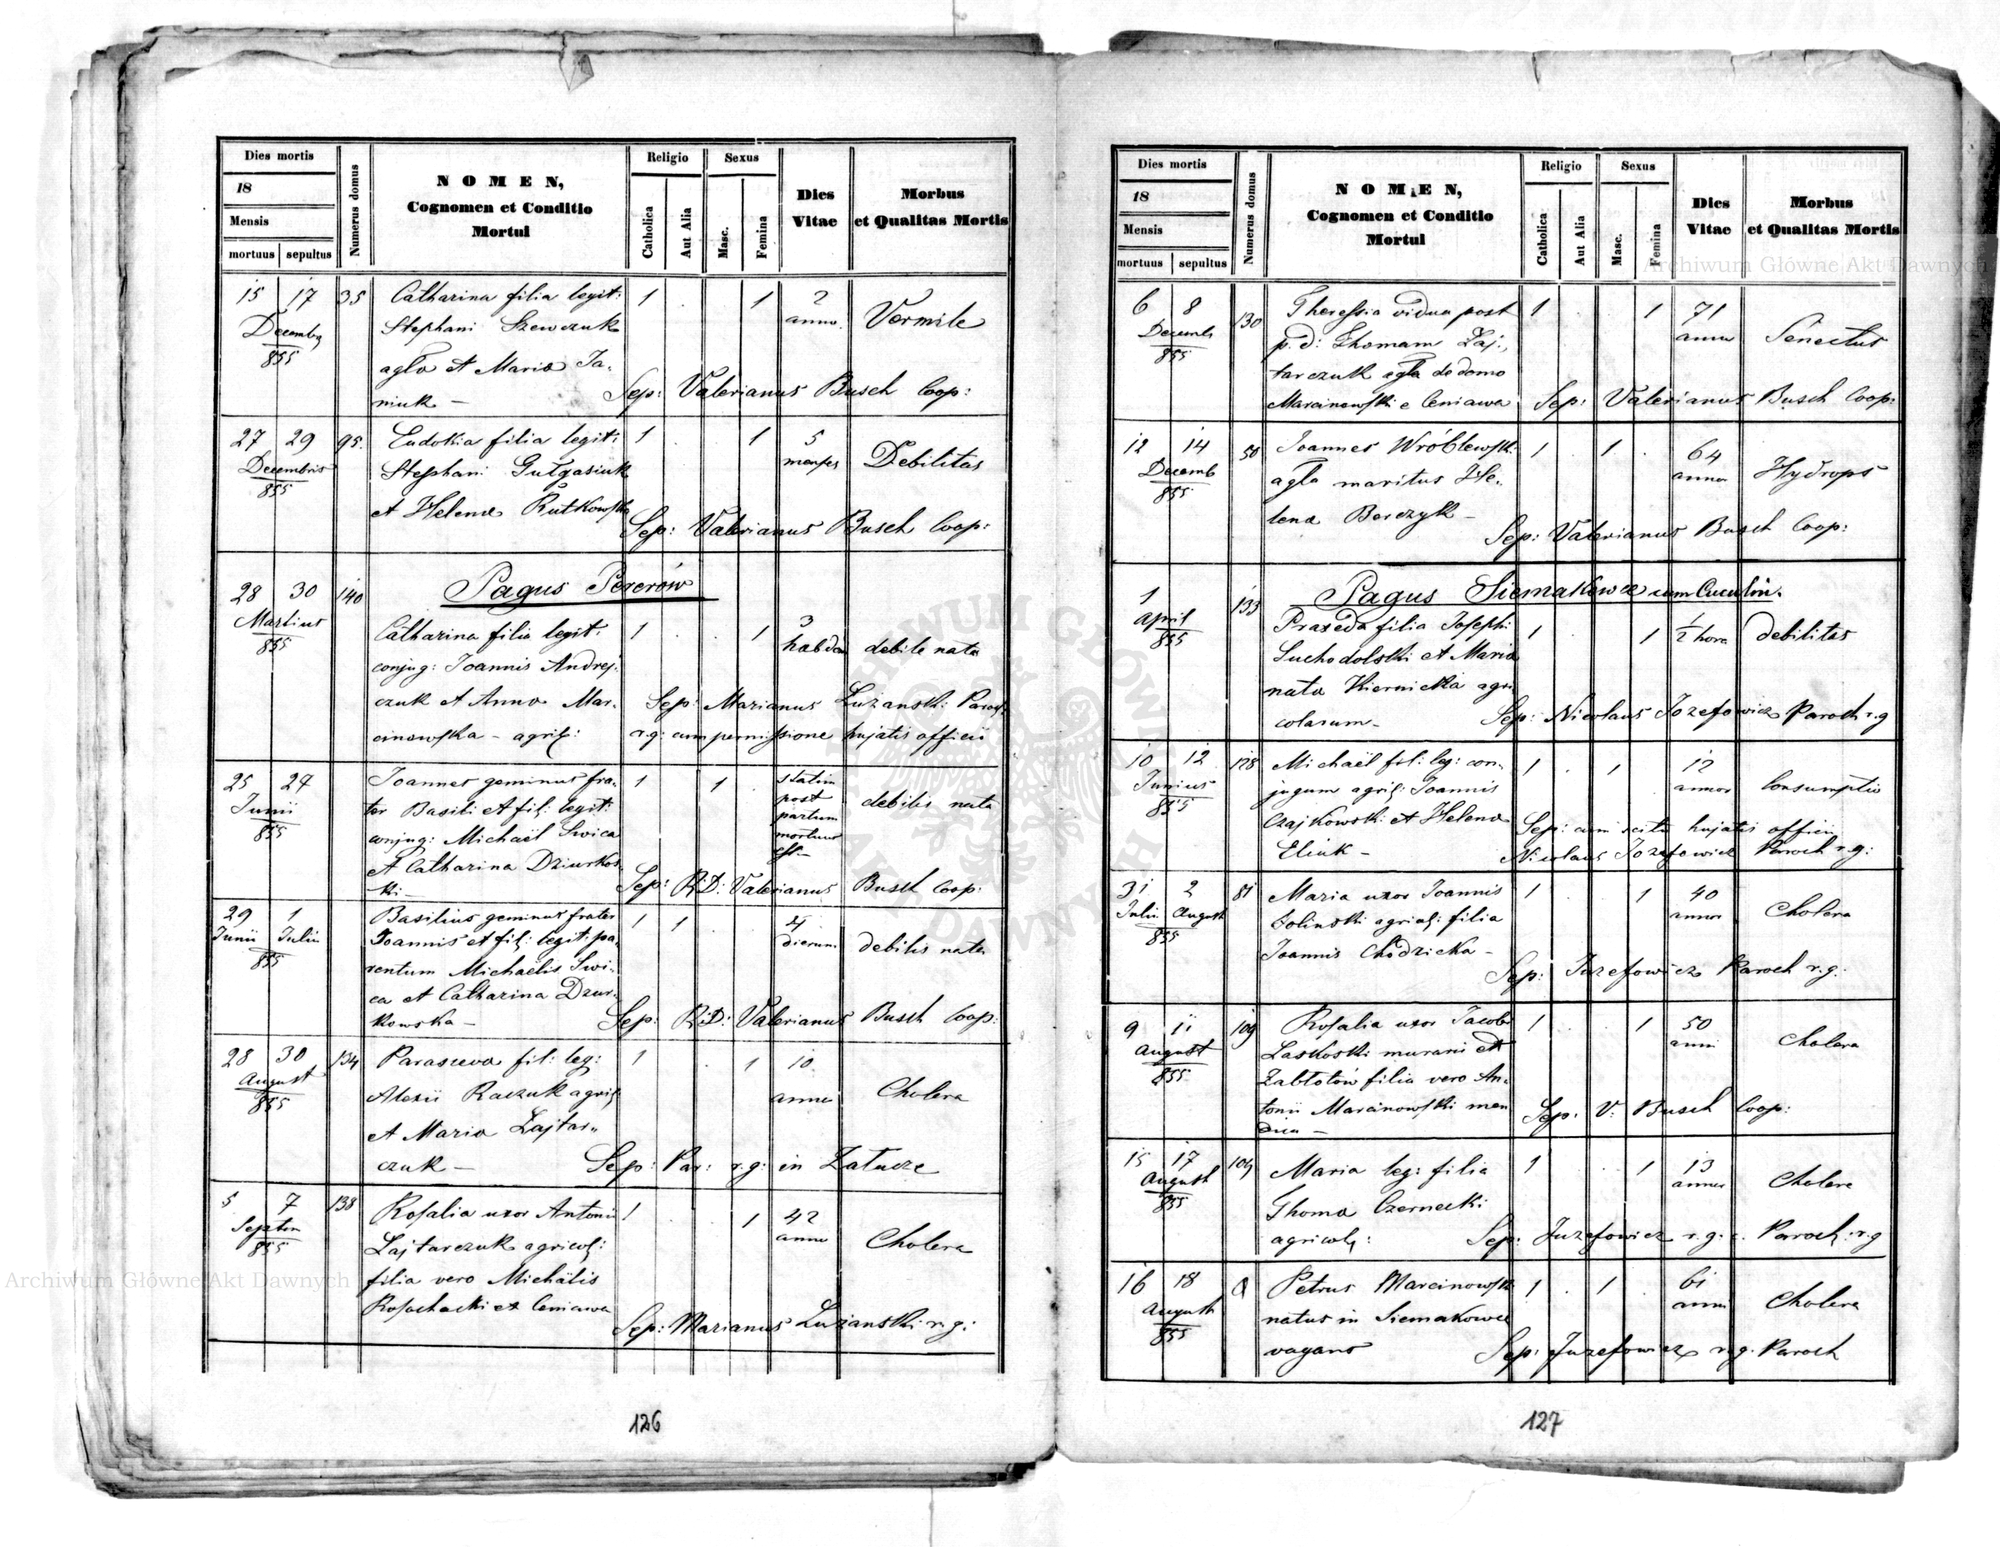 Dies mortis
18
Mensis
mortuus sepultus
Numerus domus
NOMEN,
Cognomen et Conditio
Mortui
Religio
Catholica
Aut Alia
Sexus
Masc.
Femina
Dies
Vitae
Morbus
et Qualitas Mortis
15 17 35 Catharina filia legit: 1 . . 1 2 Vermile
Decembr Stephani Szewczuk anno.
855
agla et Maria Ja-
niuk — Sep: Valerianus Busch Coop:
27 29 95. Eudokia filia legit: 1 . . 1 5 Debilitas
Decembris Stephani menses
855
et Helena Rutkowska
Sep: Valerianus Busch Coop:
Pagus Pererów
28 30 140
Martius
855
Catharina filia legit. 1 . . 1 3
conjug: Joannis Andrej- debile nata
czuk et Anna Mar- Sep: Marianus Luzanski Paroch
cinowska — agric: r.g: cum permissione hujatis officii
25 27 Joannes geminus fra- 1 . 1 . statim
Junii ter Basili et fil: legit: post debilis nata
855 conjug: Michaël Swica partum
et Catharina Dziurkow- mortuus
ski — est —
Sep: R:D: Valerianus Busch Coop:
29 1 Basilius geminus frater 1 1 . . 4
Junii Julii Joannis et fil: legit: pa- dierum debilis nata
855 rentum Michaëlis Swi-
ca et Catharina Dzur-
kowska — Sep: R:D: Valerianus Busch Coop:
28 30 134 Parasceva fil: leg: 1 . . 1 10
August Alexii Raczuk agric anno Cholera
855
et Maria Lajtar-
czuk — Sep: Par: r.g: in Zalucze
5 7 138 Rosalia uxor Antonii 1 . . 1 42
Septem Lajtarczuk agricol: anno Cholera
855
filia vero Michälis
Rosochacki ex Ceniawa
Sep: Marianus Luzanski r.g:
126
Dies mortis
18
Mensis
mortuus sepultus
Numerus domus
NOMEN,
Cognomen et Conditio
Mortui
Religio
Catholica
Aut Alia
Sexus
Masc.
Femina
Dies
Vitae
Morbus
et Qualitas Mortis
6 8 130 Theressia vidua post 1 . . 1 71
Decemb p. d: Thomam Laj- anno Senectus
855 tarczuk agla de domo
Marcinowski e Ceniawa Sep: Valerianus Busch Coop:
12 14 50 Joannes Wróblewski 1 . 1 . 64
Decemb agla maritus He- anno Hydrops
855 lena Berczyk —
Sep: Valerianus Busch Coop:
Pagus Siemakowce cum Cuculin.
1 133
April
855
Praxeda filia Josephi 1 . . 1 1/2 hora debilitas
Suchodolski et Maria
nata Kiernicka agri
colarum — Sep: Nicolaus Jozefowicz Paroch r.g
10 12 128 Michaël fil: leg: con- 1 . 1 12
Junius jugum agric: Joannis annor Consumptio
855 Czajkowski et Helena Sep: cum scitu hujatis officii
Eliuk — Nicolaus Jozefowicz Paroch r.g:
31 2 81 Maria uxor Joannis 1 . . 1 40
Julii August Solinski agricol: filia annor Cholera
855
Joannis Chodzicka —
Sep: Juzefowicz Paroch r.g:
9 11 109 Rosalia uxor Jacobi 1 . . 1 50
August Laskoski murarii ex anni Cholera
855 Zabłotów filia vero An-
tonii Marcinowski men
dica — Sep: V: Busch Coop:
15 17 104 Maria leg: filia 1 . . 1 13
August Thoma Czernecki annor Cholera
855
agricol: Sep: Juzefowicz r.g. c. Paroch: r.g
16 18 Petrus Marcinowski 1 . 1 . 61
August natus in Siemakowce anni Cholera
855
vagans Sep: Juzefowicz r.g. Paroch
127
Archiwum Główne Akt Dawnych
Archiwum Główne Akt Dawnych
ARCHIWUM GŁÓWNE AKT DAWNYCH